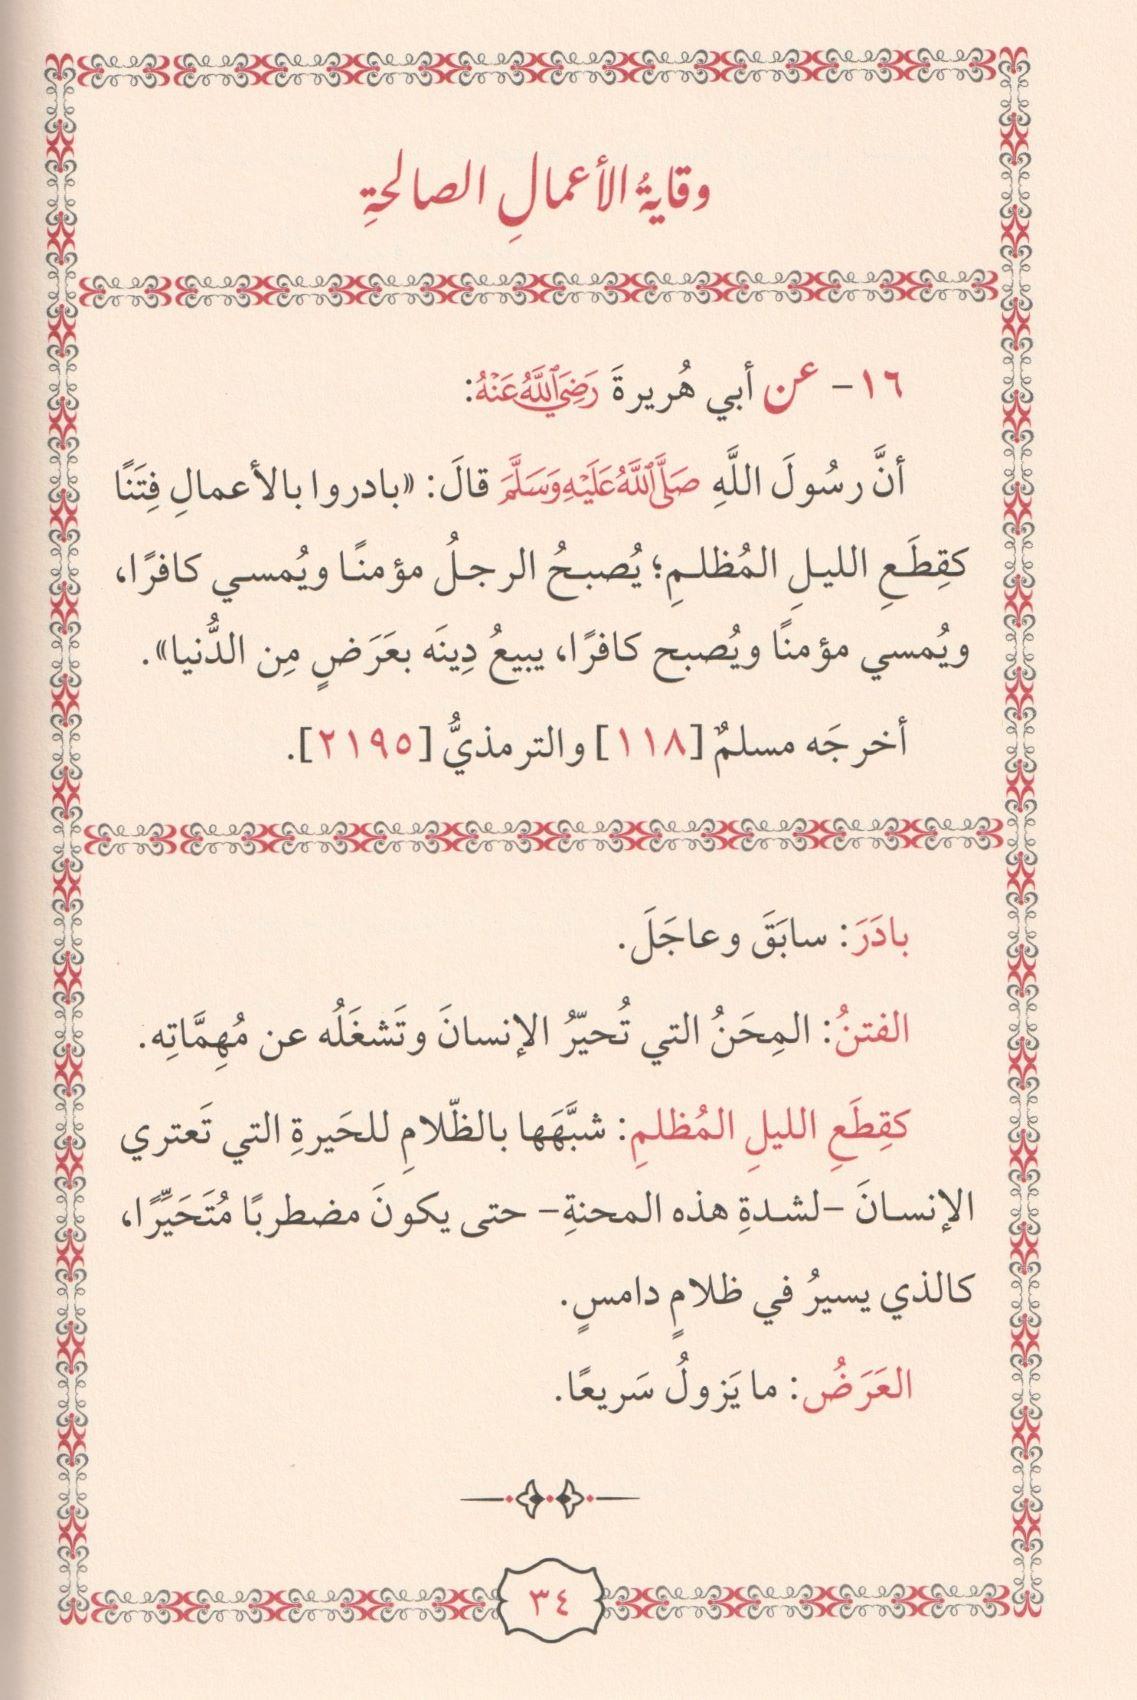 وقايةُ الأعمالِ الصالحةِ
١٦- عن أبي هُريرةَ رَضِيَ ٱللَّهُ عَنْهُ:
أنَّ رسُولَ اللَّهِ صَلَّى ٱللَّهُ عَلَيْهِ وَسَلَّمَ قالَ: «بادروا بالأعمالِ فِتَنًا
كقِطَعِ الليلِ المُظلمِ؛ يُصبحُ الرجلُ مؤمنًا ويُمسي كافرًا،
ويُمسي مؤمنًا ويُصبح كافرًا، يبيعُ دِينَه بعَرَضٍ مِن الدُّنيا».
أخرجَه مسلمٌ [١١٨] والترمذيُّ [٢١٩٥].
بادَرَ: سابَقَ وعاجَلَ.
الفتنُ: المِحَنُ التي تُحيّرُ الإنسانَ وتَشغَلُه عن مُهِمَّاتِه.
كقِطَعِ الليلِ المُظلمِ: شبَّهَها بالظّلامِ للحَيرةِ التي تَعتري
الإنسانَ -لشدةِ هذه المحنةِ- حتى يكونَ مضطربًا مُتَحَيِّرًا،
كالذي يسيرُ في ظلامٍ دامسٍ.
العَرَضُ: ما يَزولُ سَريعًا.
٣٤